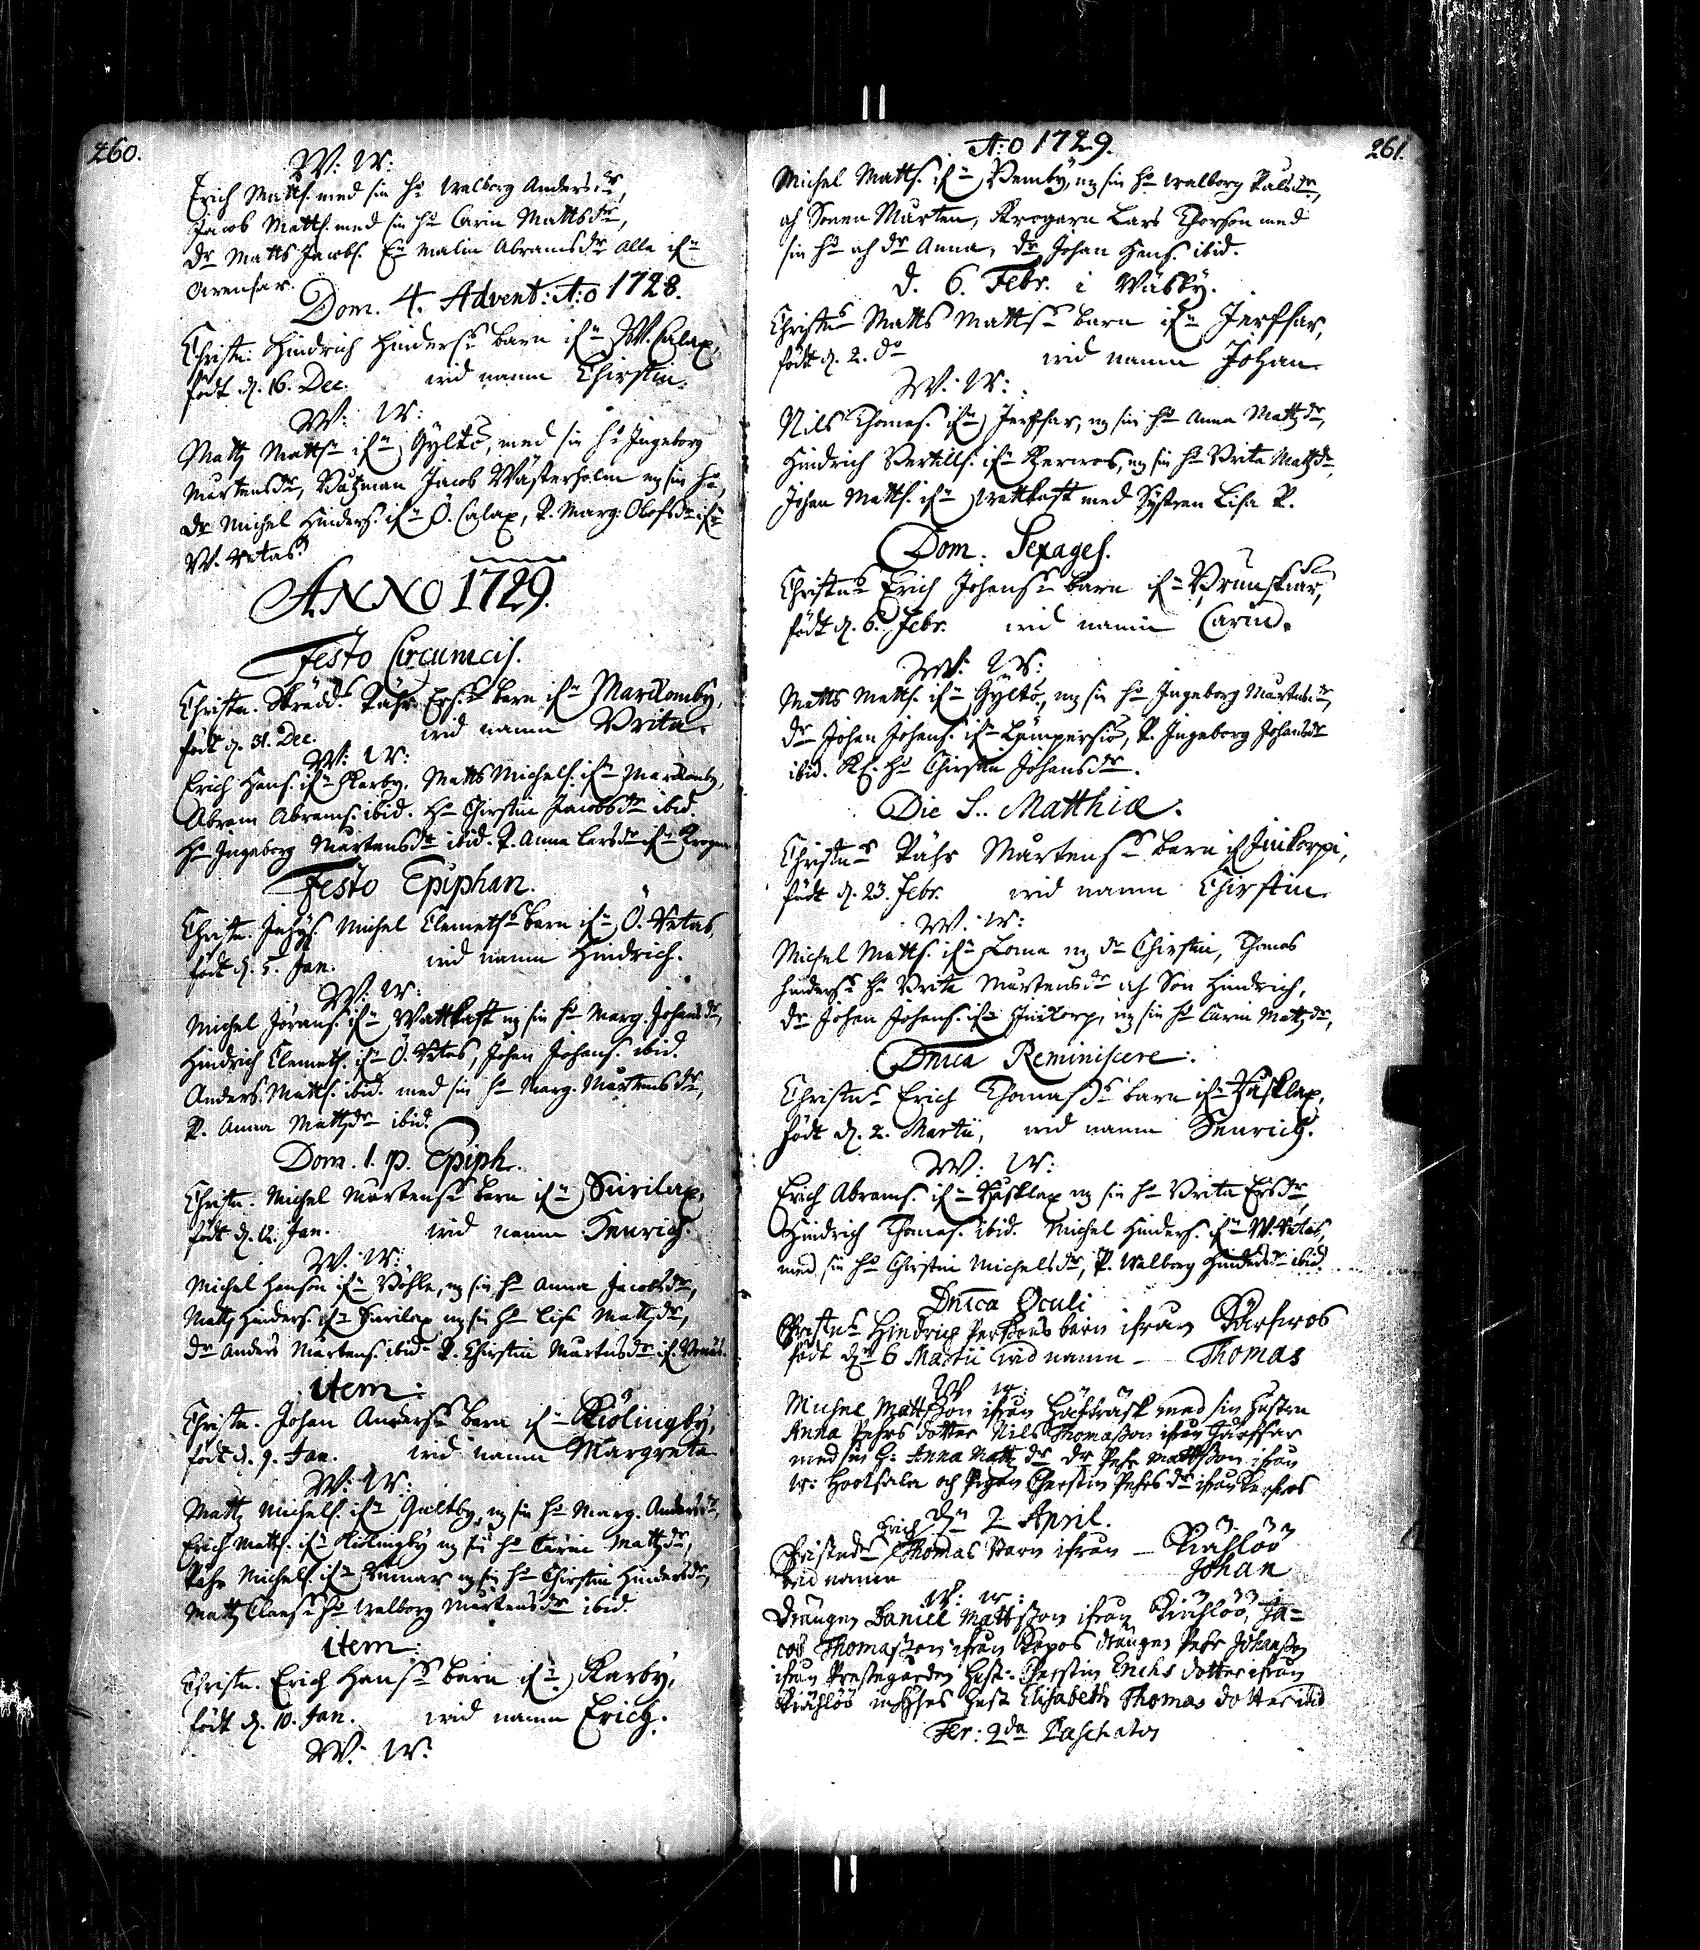 260.
W: W:
Erich Matts. med sin h:u Walborg Andersdr,
Jacob Matts. med sin h:u Carin Mattsdr,
Dr Matts Jacobs. Malin Abramsdr alle ifn
Orensar.
Dom. 4. Advent: A:o 1728.
Christn. Hindrich Hinderss barn ifn W. Calax,
födt d. 16. Dec. wid namn Chirstin.
W: W:
Matz Mattsn ifn Gyltö, med sin h:u Ingeborg
Mårtensdr, Båtzman Jacob Wästerholm m sin h:u,
Dr Michel Hinders. ifn Ö. Calax, P. Marg: Olofsdr ifn
W. Retas.
ANNO 1729.
Festo Circumcis.
Christn. Skrädd. Pähr Erss barn ifn Marckomby,
födt d. 31. Dec. wid namn Brita.
W: W:
Erich Hans. ifn Karby, Matts Michels. ifn Marckomby,
Abram Abrams. ibid. H:u Chirstin Jacobsdr ibid.
H:u Ingeborg Mårtensdr ibid. P. Anna Larsdr ifn
Festo Epiphan.
Christn. Michel Clemetss barn ifn Ö. Retas,
födt d. 5. Jan. wid namn Hindrich.
W: W:
Michel Jörans. ifn Wattkast m sin h:u Marg. Johansdr,
Hindrich Clemets. ifn Ö. Retas, Johan Johans. ibid.
Anders Matts. ibid. med sin h:u Marg. Mårtensdr,
P. Anna Matzdr ibid.
Dom. 1. p. Epiph.
Christn. Michel Mårtenss barn ifn Sarilax,
födt d. 12. Jan. wid namn Henrich.
W: W:
Michel Hanson ifn Böhle, m sin h:u Anna Jacobsdr,
Matz Hinders. ifn Sarilax m sin h:u Lisa Matzdr,
Dr Anders Mårtens. ibid. P. Chirstin Mårtensdr
item:
Christn. Johan Anderss barn ifn Kiölingby,
födt d. 9. Jan. wid namn Margreta
W: W:
Matz Michels. ifn Gultby, m sin h:u Marg. Andersdr,
Erich Matts. ifn Kiölingby m sin h:u Carin Matzdr,
Pähr Michels. ifn m sin h:u Chirstin Hindersdr,
Matz Claess h:u Walborg Mårtensdr ibid.
item:
Christn. Erich Hanss barn ifn Karby,
födt d. 10. Jan. wid namn Erich.
W: W:
A:o 1729.
261.
Michel Matts. ifn Bemby, m sin h:u Walborg Pålsdr,
och Sonen Mårten, Krögarn Lars Thorson med
sin h:u och dr Anna, Dr Johan Hans. ibid.
d. 6. Febr. i Wäsby.
Christns Matts Mattsn barn ifn Jerfsar,
födt d. 2. do wid namn Johan.
W: W:
Nils Thomas. ifn Jerfsar, m sin h:u Anna Matzdr,
Hindrich Bertills. ifn Kerwos, m sin h:u Brita Matzdr,
Johan Matts. ifn Wattkast med Systren Lisa P.
Dom. Sexages.
Christns Erich Johanss barn ifn Brunskiär,
födt d. 6. Febr. wid namn Carin.
W: W:
Matts Matts. ifn Gyltö, m sin h:u Ingeborg Mårtensdr,
Dr Johan Johans. ifn Lämpersiö, P. Ingeborg Johansdr
ibid. h:u Chirstin Johansdr.
Die S. Matthiæ.
Christns Pähr Mårtenss barn if Finkorpi,
födt d. 23. Febr. wid namn Chirstin
W: W:
Michel Matts. ifn Loma m dr Chirstin, Thomas
Hinderss h:u Brita Mårtensdr och Son Hindrich,
Dr Johan Johans. ifn Finkorp, m sin h:u Carin Matzdr,
Dnica Reminiscere.
Christns Erich Thomass barn ifn Päsklax,
födt d. 2. Martii, wid namn Henrich.
W: W:
Erich Abrams. ifn Päsklax m sin h:u Brita Ersdr,
Hindrich Thomas. ibid. Michel Hinders. ifn W. Retas,
med sin h:u Chirstin Michelsdr, P. Walborg Hindersdr ibid.
Dnica Oculi
Christns Hindrich Perssons barn ifrån Kärfwos
födt dn 6 Martii wid namn - Thomas
W w:
Michel Mattsson ifrån Håfträsk med sin hustru
Anna Pehrs dotter Nils Thomasson ifrån Järffsar
med sin h: Anna Matz dr Dr Pehr Mattsson ifrån
w: Hoolsala och Pigan Cherstin Pehrs dr ifrån Kerfwos
Dn 2 April.
Christndes Erich Thomas barn ifrån - Kirahlöö
wid namn Johan
W: w:
Drängen Daniel Mattsson ifrån Kirahlöö, Ja-
cob Thomasson ifrån drängen Pehr Johansson
ifrån Prestegården Hust: Cherstin Erichs dotter ifrån
Kirahlöö Hust Elisabeth Thomas dotter ibid
Fer: 2da Paschatos